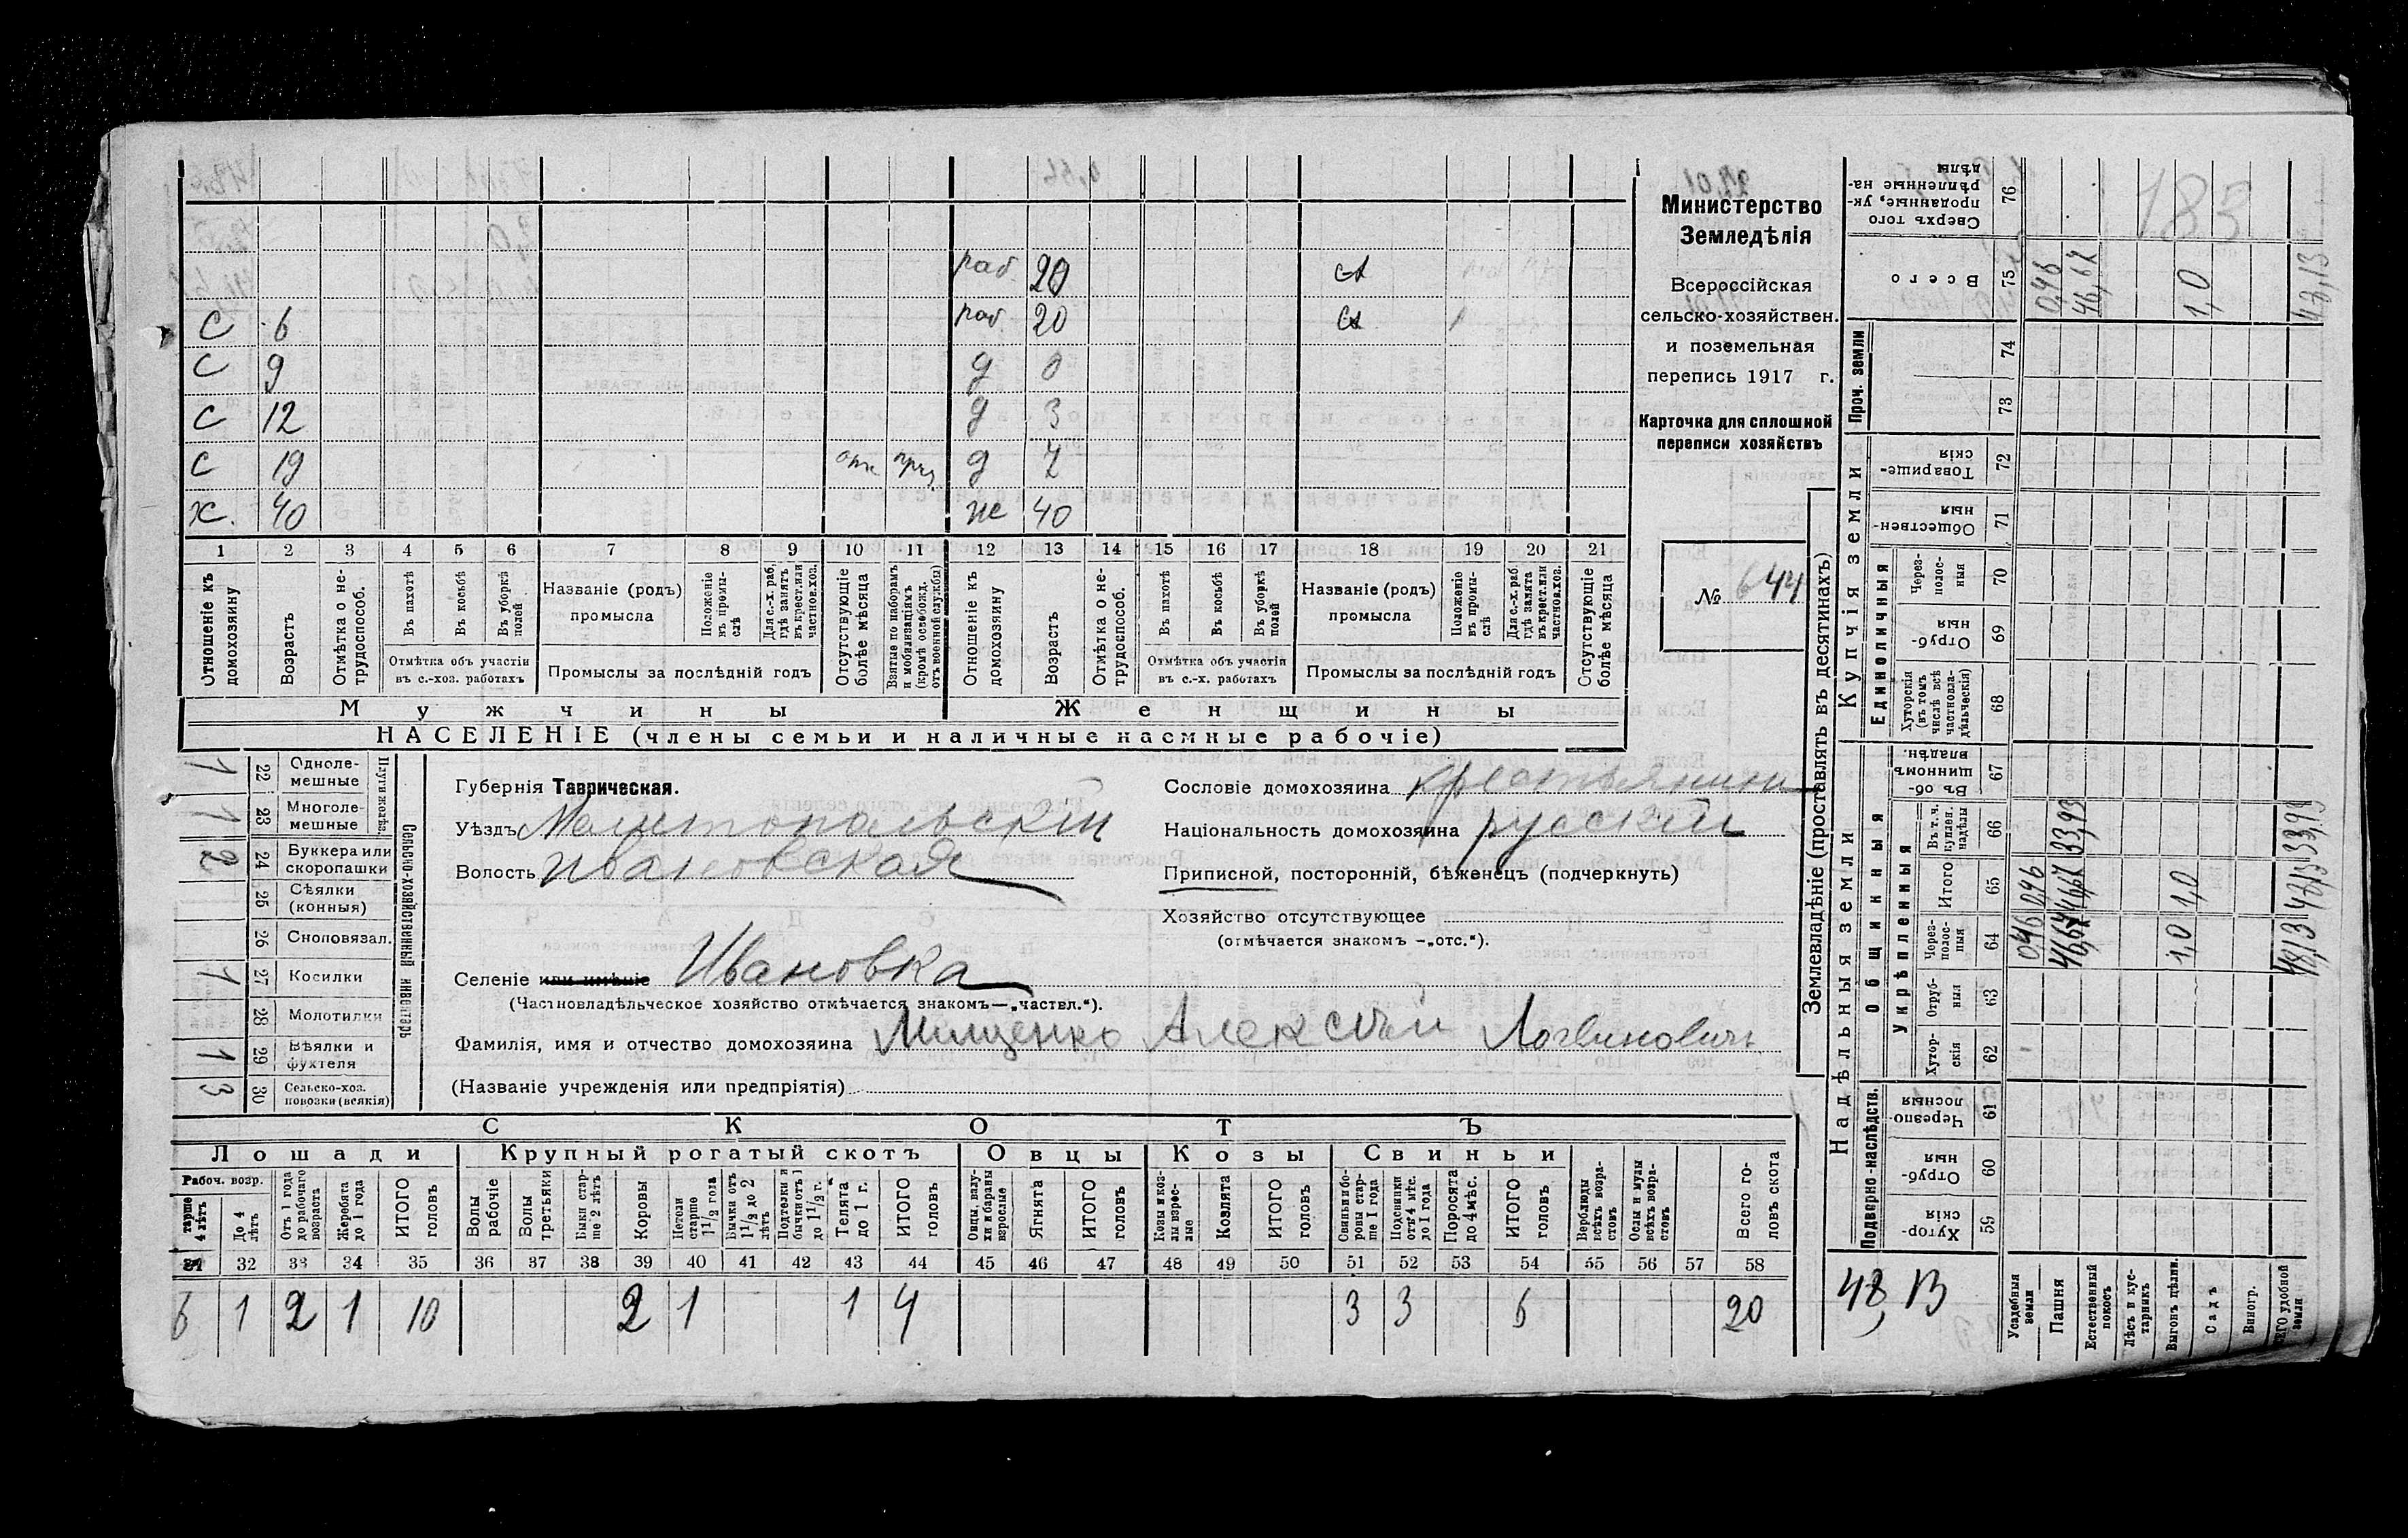 раб 20 сл
С 6 раб 20 сл
С 9 д 0
С 12 д 3
С 19 отс приз д 7
х. 40 ж 40
1 2 3 4 5 6 7 8 9 10 11 12 13 14 15 16 17 18 19 20 21
Отношеніе къ домохозяину
Возрастъ
Отмѣтка о нетрудоспособ.
Въ пахотѣ
Въ косьбѣ
Въ уборкѣ полей
Отмѣтка объ участіи въ с.-хоз. работахъ
Названіе (родъ) промысла
Положеніе въ промыслѣ
Для с.-х. раб. гдѣ занятъ въ крест. или частнов. хоз.
Промыслы за послѣдній годъ
Отсутствующіе болѣе мѣсяца
Взятые по наборамъ и мобилизаціямъ (кромѣ освобожд. отъ военной службы)
Отношеніе къ домохозяину
Возрастъ
Отмѣтка о нетрудоспособ.
Въ пахотѣ
Въ косьбѣ
Въ уборкѣ полей
Отмѣтка объ участіи въ с.-х. работахъ
Названіе (родъ) промысла
Положеніе въ промыслѣ
Для с.-х. раб. гдѣ занята въ крест. или частнов. хоз.
Промыслы за послѣдній годъ
Отсутствующіе болѣе мѣсяца
Мужчины Женщины
НАСЕЛЕНІЕ (члены семьи и наличные наемные рабочіе)
Министерство
Земледѣлія
Всероссійская
сельско-хозяйствен.
и поземельная
перепись 1917 г.
Карточка для сплошной
переписи хозяйствъ
№ 644
Сельско-хозяйственный инвентарь
Плуги желѣз.
22 Однолемешные 1
23 Многолемешные 1
24 Буккера или скоропашки 2
25 Сѣялки (конныя)
26 Сноповязал.
27 Косилки 1
28 Молотилки
29 Вѣялки и фухтеля 1
30 Сельско-хоз. повозки (всякія) 3
Губернія Таврическая.
Уѣздъ Мелитопольскій
Волость Ивановская
Селеніе или имѣніе Ивановка
(Частновладѣльческое хозяйство отмѣчается знакомъ—„частвл.“).
Фамилія, имя и отчество домохозяина Мищенко Алексѣй Логвиновичъ
(Названіе учрежденія или предпріятія)
Сословіе домохозяина крестьянинъ
Національность домохозяина русскій
Приписной, посторонній, бѣженецъ (подчеркнуть)
Хозяйство отсутствующее
(отмѣчается знакомъ —„отс.“).
СКОТЪ
Лошади Крупный рогатый скотъ Овцы Козы Свиньи
Рабоч. возр.
старше 4 лѣтъ
До 4 лѣтъ
Отъ 1 года до рабочаго возраста
Жеребята до 1 года
ИТОГО головъ
Волы рабочіе
Волы третьяки
Быки старше 2 лѣтъ
Коровы
Нетели старше 1 1/2 года
Бычки отъ 1 1/2 до 2 лѣтъ
Подтелки и бычки отъ 1 до 1 1/2 г.
Телята до 1 г.
ИТОГО головъ
Овцы, валухи и бараны взрослые
Ягнята
ИТОГО головъ
Козы и козлы взрослые
Козлята
ИТОГО головъ
Свиньи и боровы старше 1 года
Подсвинки отъ 4 мѣс. до 1 года
Поросята до 4 мѣс.
ИТОГО головъ
Верблюды всѣхъ возрастовъ
Ослы и мулы всѣхъ возрастовъ
Всего головъ скота
31 32 33 34 35 36 37 38 39 40 41 42 43 44 45 46 47 48 49 50 51 52 53 54 55 56 57 58
6 1 2 1 10 2 1 1 4 3 3 6 20
Землевладѣніе (проставлять въ десятинахъ)
Надѣльныя земли Купчія земли Проч. земли
Подворно-наслѣдств. Общинныя Единоличныя
Укрѣпленныя
Хуторскія 59
Отрубныя 60
Черезполосныя 61
Хуторскія 62
Отрубныя 63
Черезполосныя 64
Итого 65
Въ т. ч. куплен. надѣлы 66
Въ общинномъ владѣн. 67
Хуторскія (въ томъ числѣ всѣ частновладѣльческія) 68
Отрубныя 69
Черезполосныя 70
Общественныя 71
Товарищескія 72
73
74
Всего 75
Сверхъ того проданные, укрѣпленные надѣлы 76
Усадебныя земли 0,46 0,46 0,46
Пашня 46,67 46,67 33,93 46,67
Естественный покосъ
Лѣсъ и кустарникъ
Выгонъ цѣлин. 1,0 1,0 1,0
Садъ
Виногр.
ВСЕГО удобной земли 48,13 48,13 33,93 48,13
48,13
183